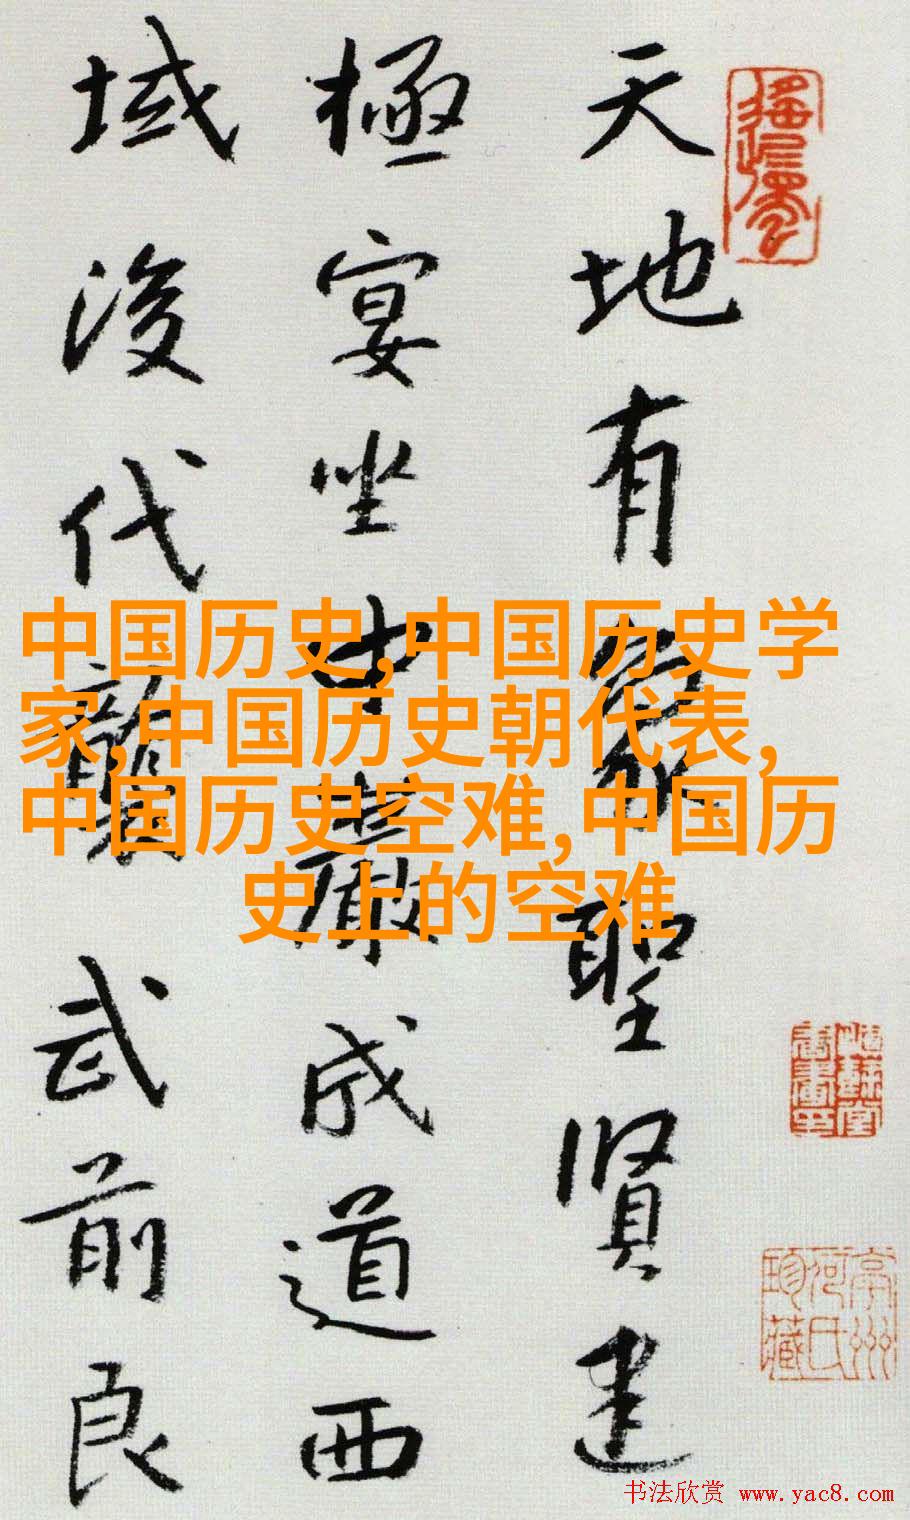 天地有象聖賢建
極宴坐中嚴成道西
域後代襲武前良
中国历史,中国历史学
家,中国历史朝代表,
中国历史空难,中国历
史上的空难
亭州
何氏
珍藏
书法欣赏 www.yac8.com